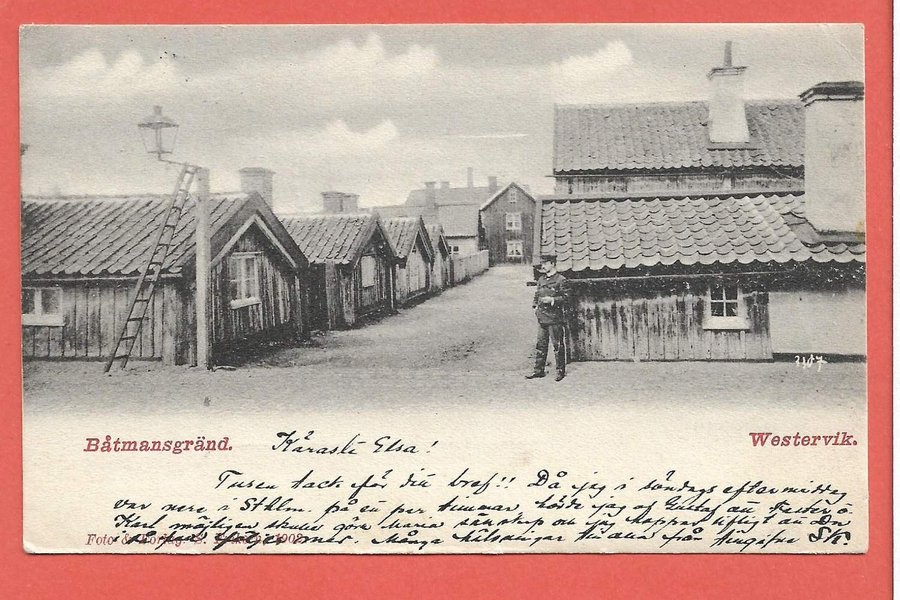 2107
Båtmansgränd.
Westervik.
Käraste Elsa!
Tusen tack för ditt bref!! Då jag i söndags eftermiddag
var nere i Sthlm. på en par timmar, hörde jag af Gustaf att Faster o.
Karl möjligen skulle göra Maria sällskap och jag hoppas lifligt att Du
följer med. Många hälsningar till alla från
Foto & Förlag. 1902